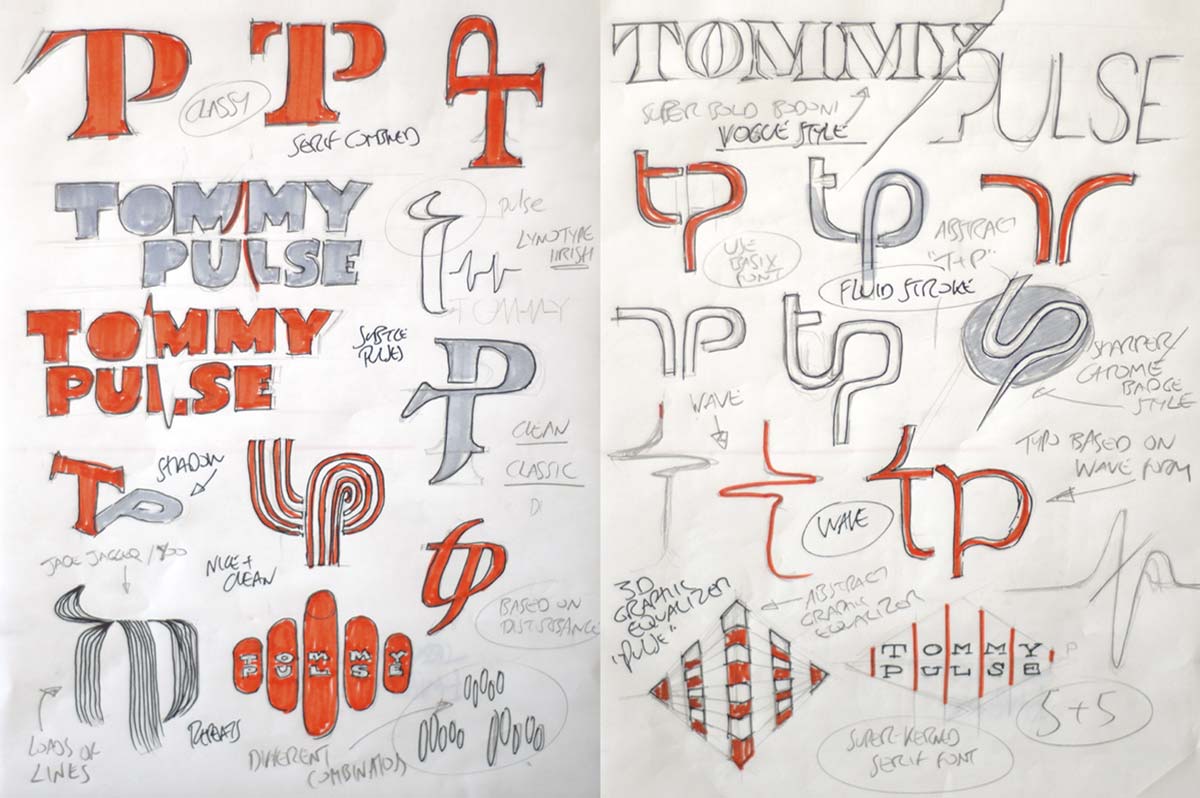 TP
TP
CLASSY
SERIF COMBINED
TOMMY
PULSE
pulse
LYNOTYPE
IIRISH
TOMMY
TOMMY
PULSE
SUBTLE
TP
CLEAN
CLASSIC
D
TP
SHADOW
JADE JAGGER /
NICE +
CLEAN
tp
tp
BASED ON
DISTURBANCE
LOADS OF
LINES
REPEATS
TOMMY
PULSE
DIFFERENT
COMBINATION
TOMMY
PULSE
SUPER BOLD BODONI
VOGUE STYLE
tp
tp
USE
BASIX
FONT
ABSTRACT
"T+P"
FLUID STROKE
TP
tp
SHARPER/
CHROME
BADGE
STYLE
WAVE
TYPO BASED ON
WAVE FORM
WAVE
tp
3D
GRAPHIC
EQUALIZER
"PULSE"
ABSTRACT
GRAPHIC
EQUALIZER
TOMMY
PULSE
P
5+5
SUPER-KERNED
SERIF FONT